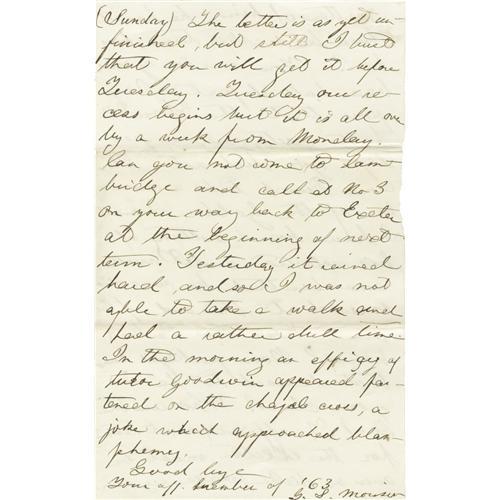 (Sunday) The letter is as yet un-
finished, but still I trust
that you will get it before
Tuesday. Tuesday our re-
cess begins but it is all over
by a week from Monday.
Can you not come to Cam-
bridge and call at No 3
on your way back to Exeter
at the beginning of next
term. Yesterday it rained
hard and so I was not
able to take a walk and
had a rather dull time
In the morning an effigy of
tutor Goodwin appeared fas-
tened on the chapel cross, a
joke which approached blas-
phemy.
Good bye
Your aff. member of '63